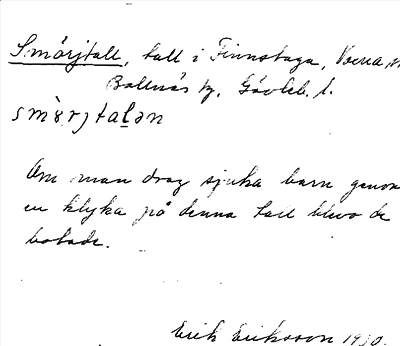 Smörjtall, tall i Finnstuga, Voxna
Bollnäs sn, Gävleb. l.
smö̀rjtaḷən
Om man drog sjuka barn genom
en klyka på denna tall blevo de
botade.
Erik Eriksson 1930.